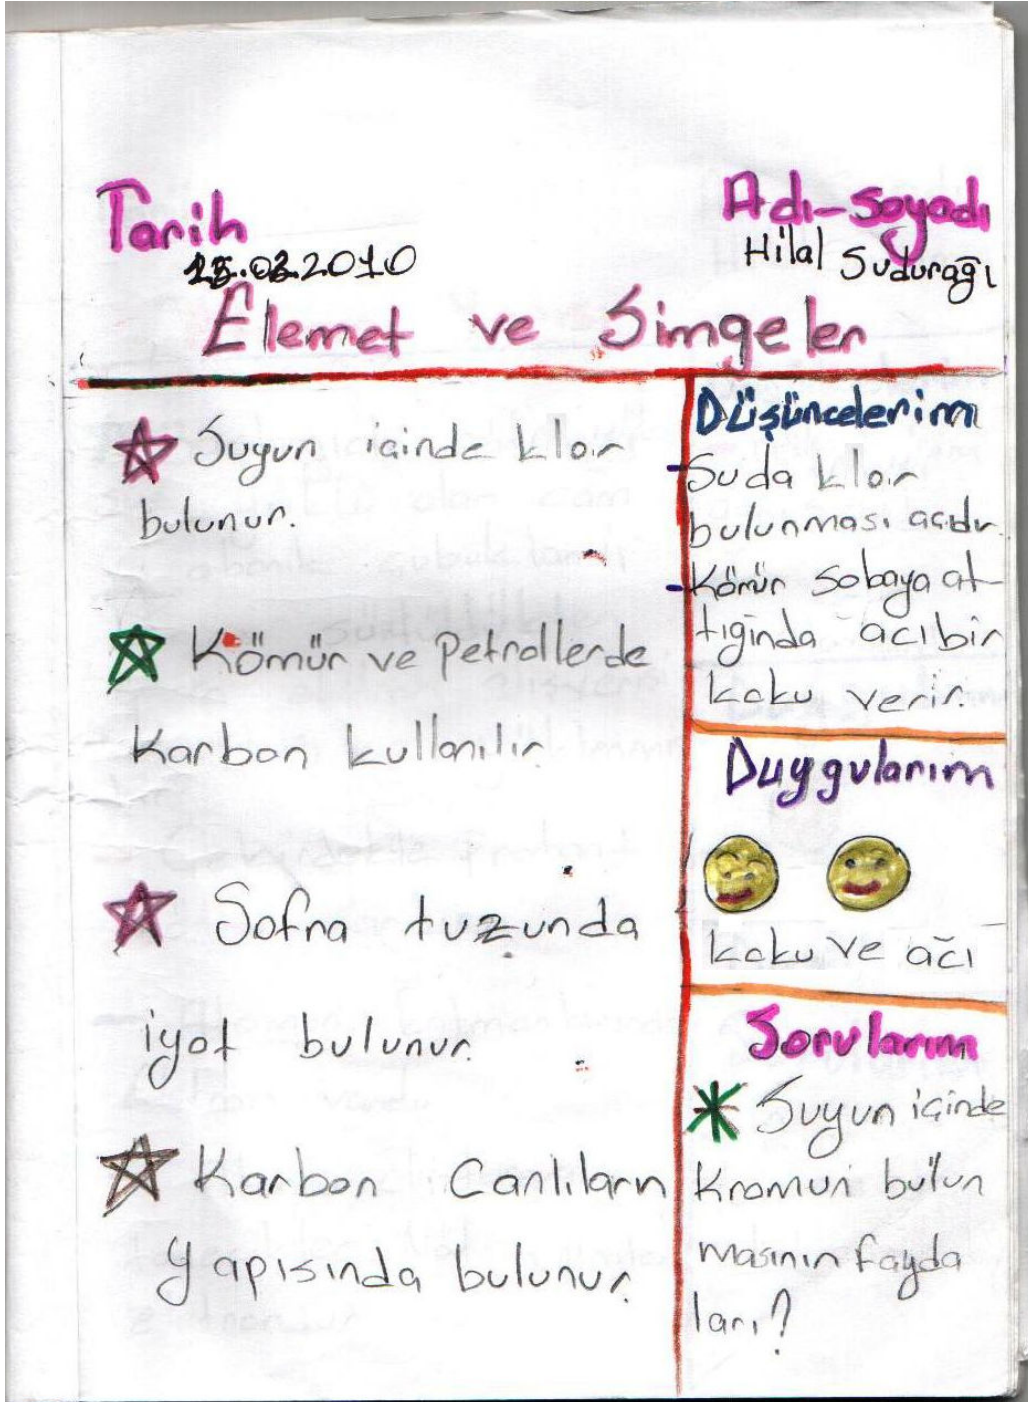 Tarih
Adı-soyadı
Hilal Sudurağı
Elemet ve Simgeler
Suyun içinde klor
bulunur.
Kömür ve Petrollerde
Karbon kullanılır
Sofra tuzunda
iyot bulunur.
Karbon Canlıların
yapısında bulunur.
Düşüncelerim
- Suda klor
bulunması acıdır.
- Kömür sobaya at-
tığında acı bir
koku verir.
Duygularım
koku ve ağcı
Sorularım
Suyun içinde
Kromun bulun
masının fayda
ları?